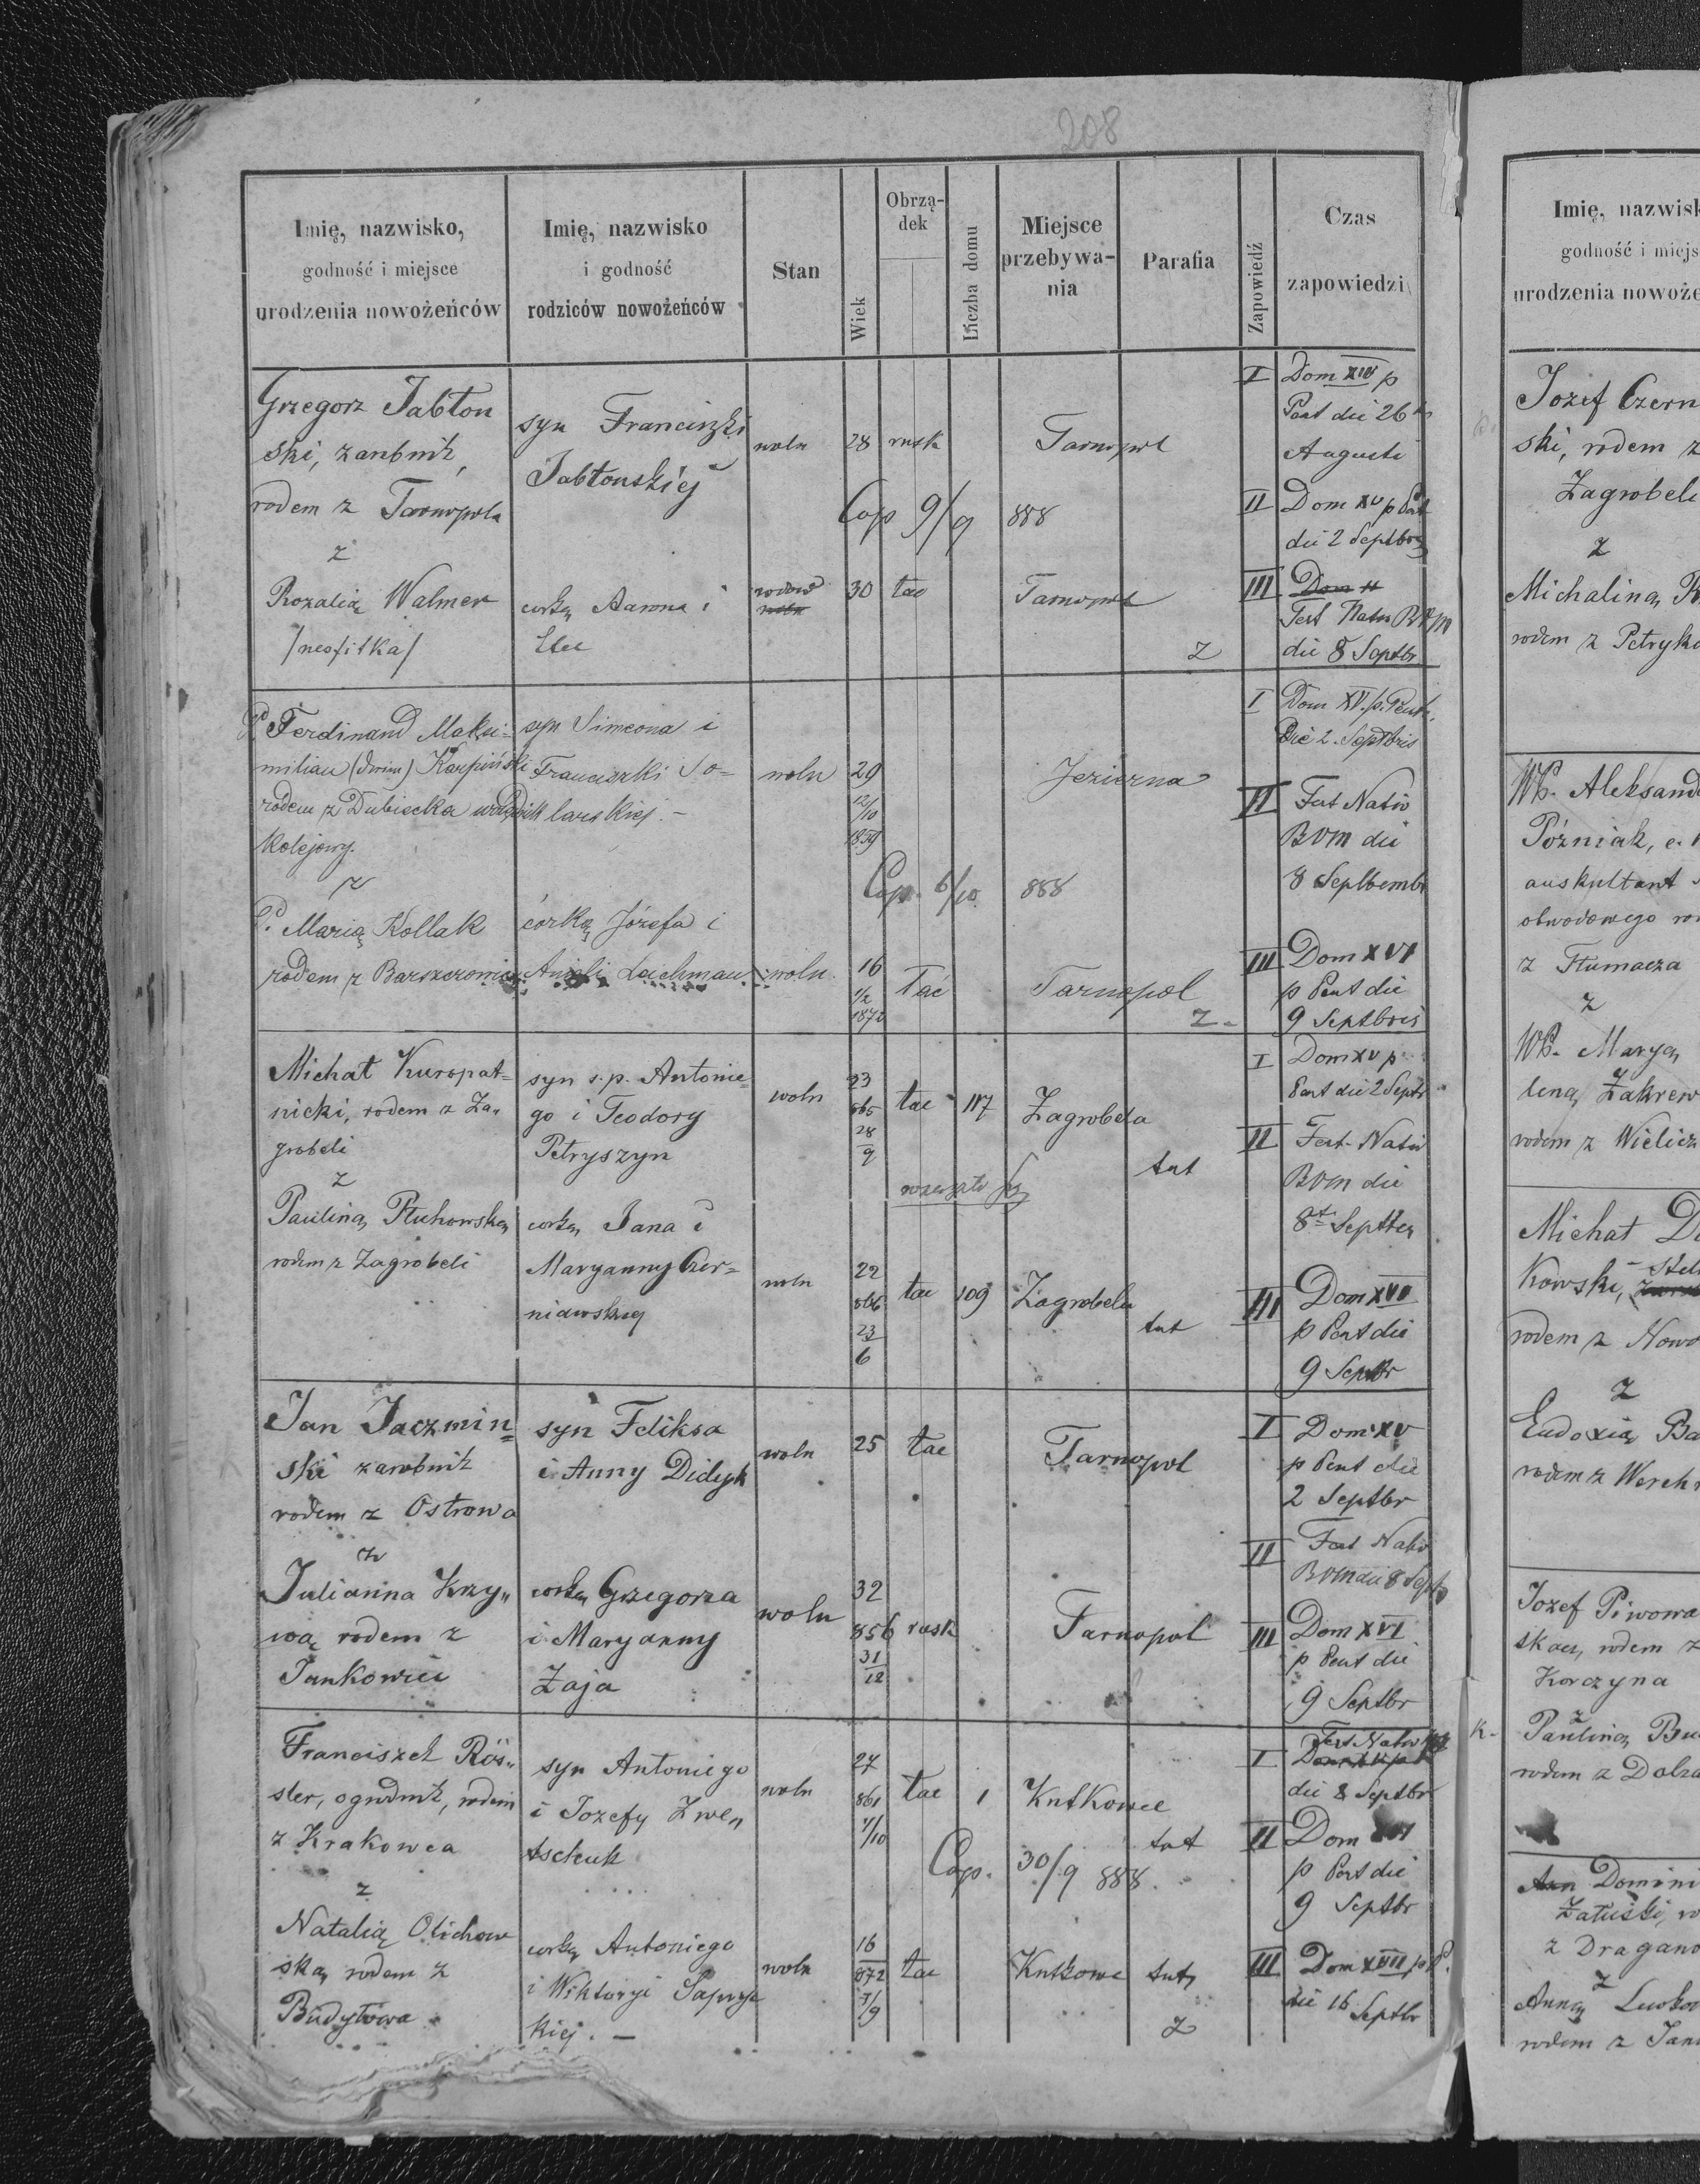 208
Imię, nazwisko,
godność i miejsce
urodzenia nowożeńców
Imię, nazwisko
i godność
rodziców nowożeńców
Stan
Wiek
Obrzą-
dek
Liczba domu
Miejsce
przebywa-
nia
Parafia
Zapowiedź
Czas
zapowiedzi
Grzegorz Jabłon
ski, zarobnik,
rodem z Tarnopola
z
Rozalią Walmer
/neofitka/
syn Franciszki
Jabłonskiej
corką Aarona i
woln
28
rusk
Tarnopol
Cop 9/9 888
30
łac
Tarnopol
z
I Dom XIV p
Pent die 26
Augusti
II Dom XV p Pent
die 2 Septbris
III Dom
Fest Nativ BVM
die 8 Septbr
P. Ferdinand Maksi-
milian Karpiński
rodem z Dubiecka
kolejowy.
z
P. Marią Kollak
rodem z Barszczowic
syn Simeona i
Franciszki So-
larskiej. -
córką Józefa i
Anieli Lachman
woln
29
12/10
1859
Jezierna
Cop. 6/10 888
woln.
16
1/2
1872
łac
Tarnopol
z
I Dom XV. p. Pent.
Die 2. Septbris
II Fest Nativ
BVM die
8 Septbembr
III Dom XVI
p Pent die
9 Septbris
Michał Kuropat=
nicki, rodem z Za-
grobeli
z
Pauliną Pluhowską
rodem z Zagrobeli
syn s.p. Antonie=
go i Teodory
Petryszyn
corką Jana i
Maryanny Czer=
niawskiej
woln
23
865
28
9
łac
117
Zagrobela
tut
woln
22
866
23
6
łac
109
Zagrobela
tut
I Dom XV p
Pent die 2 Septr
II Fest Nativ
BVM die
8 Septbr
III Dom XVI
p Pent die
9 Septbr
Jan Jaczmin=
ski zarobnik
rodem z Ostrowa
z
Julianna Krzy„
wą rodem z
Jankowiec
syn Feliksa
i Anny Didyk
corką Grzegorza
i Maryanny
Zaja
woln
25
łac
Tarnopol
woln
32
856
31
12
rusk
Tarnopol
I Dom XV
p Pent die
2 Septbr
II Fest Nativ
BVM die 8 Septb
III Dom XVI
p Pent die
9 Septbr
Franciszek Rös„
sler, ogrodnik, rodem
z Krakowca
z
Natalią Olichow
ską rodem z
Budyłowa
syn Antoniego
i Jozefy Zwen
tschuk
corką Antoniego
i Wiktoryi Sapryc
kiej. -
woln
27
861
1/10
łac
1
Kutkowce
tut
Cop. 30/9 888.
woln
16
872
7/9
łac
Kutkowce
tut
z
I Fest Nativ
die 8 Septbr
II Dom XVI
p Pent die
9 Septbr
III Dom XVII p P.
die 16 Septbr
Imię, nazwisk
godność i miejs
urodzenia nowoże
Jozef Czern
ski, rodem z
Zagrobeli
z
Michaliną
rodem z Petryko
WP. Aleksand
Późniak, c.
auskultant
obwodowego
z Tłumacza
z
WP. Maryą
leną Zakrew
rodem z Wielicz
Michał
kowski,
rodem z Nowo
z
Eudoxią Ba
rodem z Werchn
Jozef Piwowa
skau, rodem z
Korczyna
z
Pauliną Bu
rodem z Dolza
Domini
Załuski,
z Dragano
z
Anną
rodem z Jan